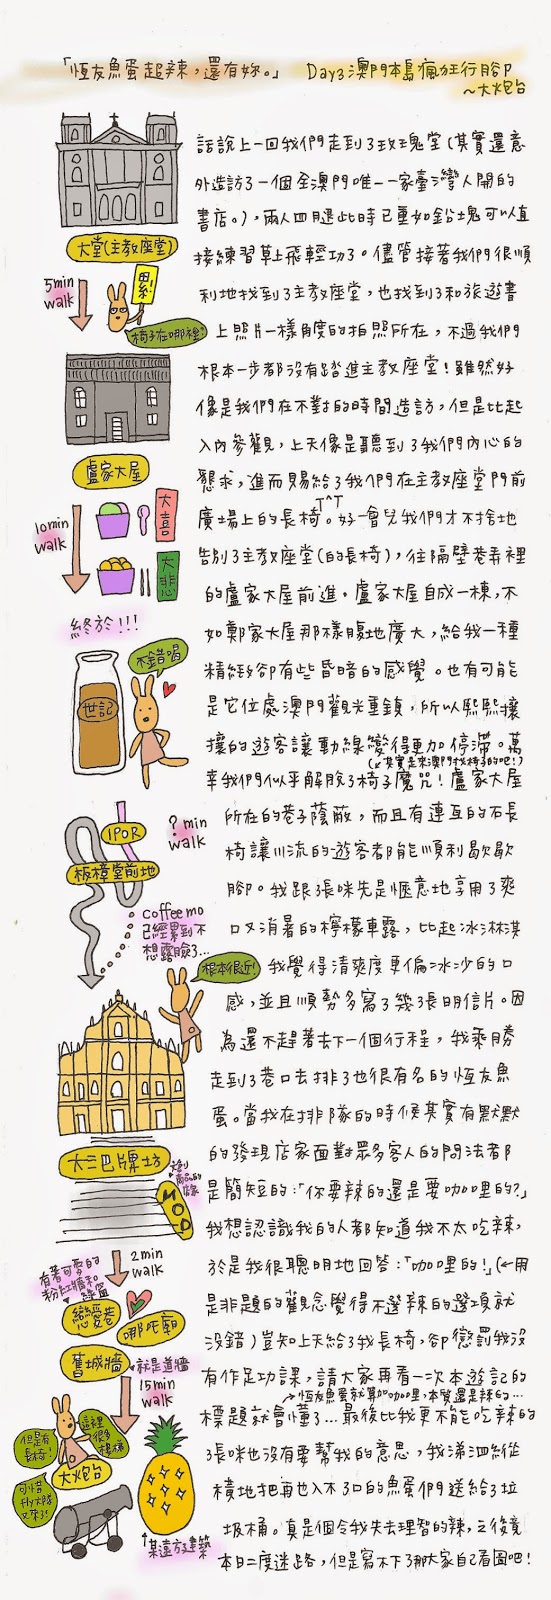 「恆友魚蛋起辣，還有妳。」 Day3 澳門本島瘋狂行腳
～大炮台
話說上一回我們走到了玫瑰堂（其實還意
外造訪了一個全澳門唯一一家臺灣人開的
書店。），兩人四腿此時已重如鉛塊可以直
接練習草上飛輕功了。儘管接著我們很順
利地找到了主教座堂，也找到了和旅遊書
上照片一樣角度的拍照所在，不過我們
根本一步都沒有踏進主教座堂！雖然好
像是我們在不對的時間造訪，但是比起
入內參觀，上天像是聽到了我們內心的
懇求，進而賜給了我們在主教座堂門前
廣場上的長椅。T^T 好一會兒我們才不捨地
告別了主教座堂（的長椅），往隔壁巷弄裡
的盧家大屋前進。盧家大屋自成一棟，不
如鄭家大屋那樣腹地廣大，給我一種
精緻卻有些昏暗的感覺。也有可能
是它位處澳門觀光重鎮，所以熙熙攘
攘的遊客讓動線變得更加停滯。萬
（↙其實是來澳門找椅子的吧！）
幸我們似乎解脫了椅子魔咒！盧家大屋
所在的巷子蔭蔽，而且有連互的石長
椅讓川流的遊客都能順利歇歇
腳。我跟張咪先是愜意地享用了爽
口又消暑的檸檬車露，比起冰淇淋
我覺得清爽度更偏冰沙的口
感，並且順勢多寫了幾張明信片。因
為還不趕著去下一個行程，我乘勝
走到了巷口去排了也很有名的恆友魚
蛋。當我在排隊的時候其實有默默
的發現店家面對眾多客人的問法都
是簡短的：「你要辣的還是要咖哩的？」
我想認識我的人都知道我不太吃辣，
於是我很聰明地回答：「咖哩的！」（←用
是非題的觀念覺得不選辣的選項就
沒錯）豈知上天給了我長椅，卻懲罰我沒
有作足功課，請大家再看一次本遊記的
→恆友魚蛋就算加咖哩，本質還是辣的…
標題就會懂了…最後比我更不能吃辣的
張咪也沒有要幫我的意思，我涕泗縱
橫地把再也入不了口的魚蛋們送給了垃
圾桶。真是個令我失去理智的辣，之後竟
本日二度迷路，但是寫不下了那大家自己看圖吧！
大堂（主教座堂）
5min
walk
累
椅子在哪裡？
盧家大屋
10min
walk
大喜
大悲
終於！！！
不錯喝
世記
IPOR
？min
walk
板樟堂前地
coffee mo
已經累到不
想露臉了…
根本很近！
大三巴牌坊
MOD
2min
walk
有著可愛的
粉紅牆和
綠窗
戀愛巷
哪吒廟
舊城牆
就是道牆
15min
walk
但是有
長椅！
這裡
很多
樓梯
大炮台
可惜
fly大隊
又來了！
某遠方建築